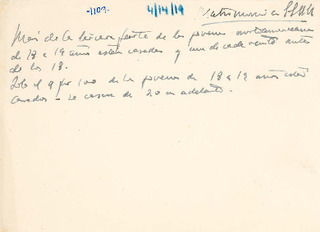 -1109- 4/14/19 Matrimonio EEUU
Mas de la tercera parte de los jovenes norteamericanos
de 18 a 19 años estan casados y uno de cada antes
de los 18.
Solo el 9 por 100 de los jovenes de 18 a 19 años estan
casados - Se casan de 20 en adelante.